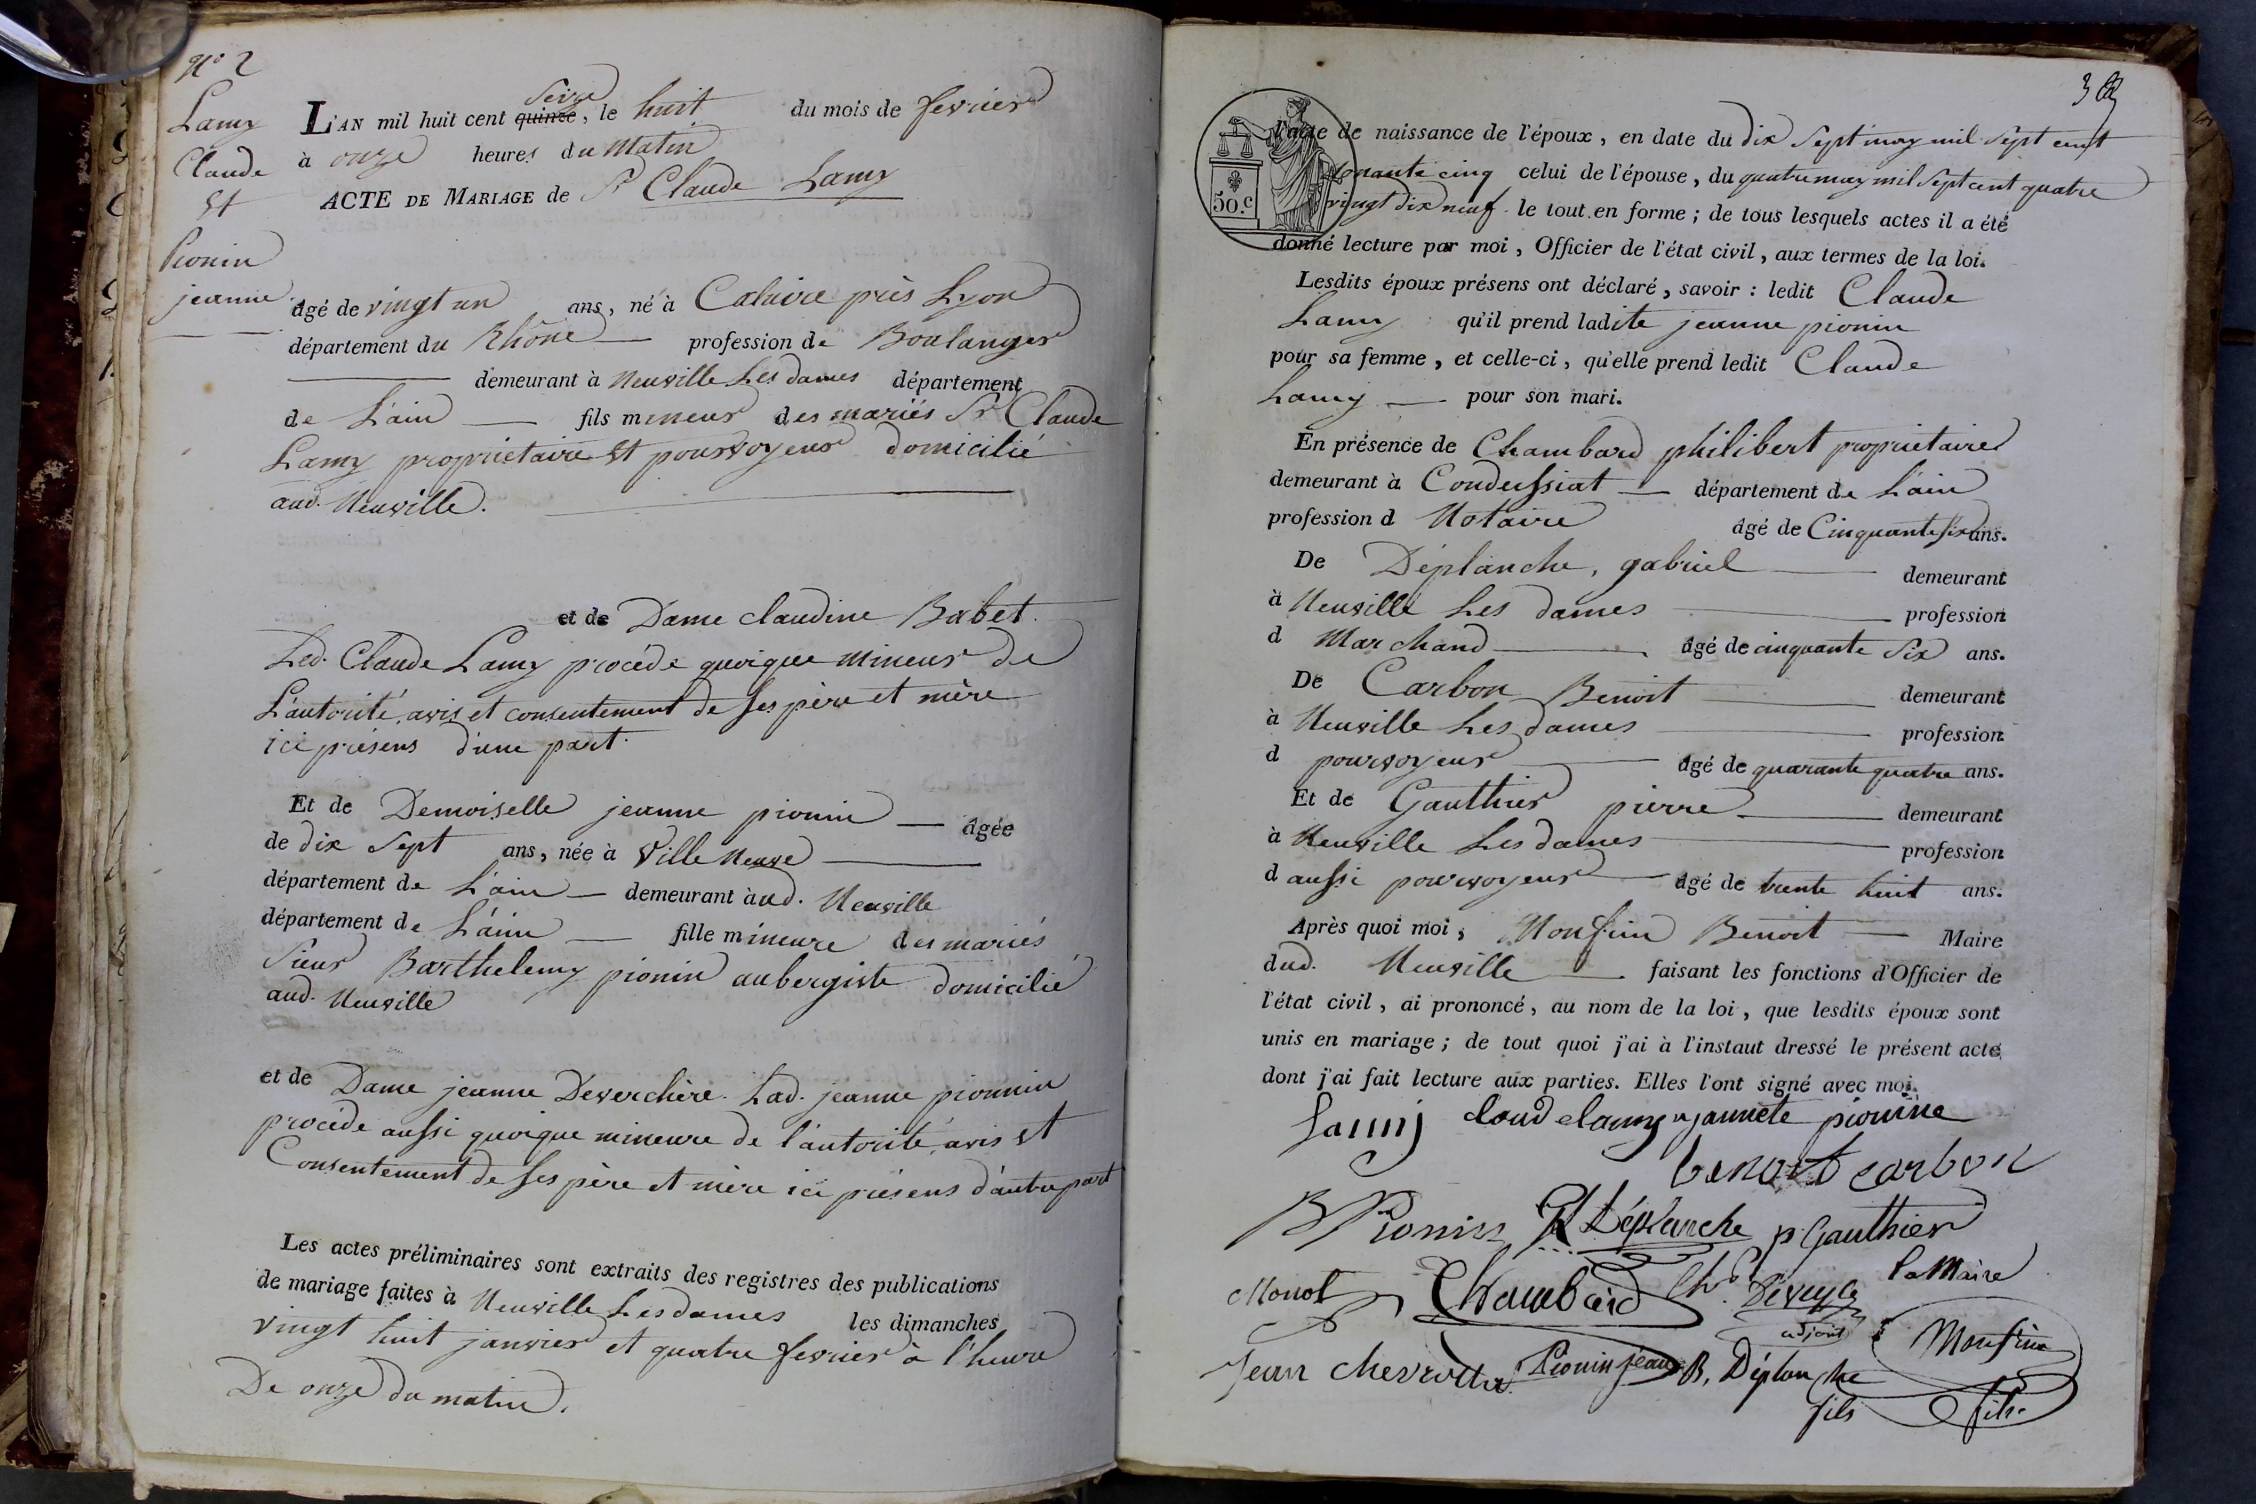 N° 2
Lamy
Claude
Et
Pionin
jeanne
L'AN mil huit cent quinze seize, le huit du mois de fevrier
à onze heures du Matin
ACTE DE MARIAGE de Sr Claude Lamy
âgé de vingt un ans, né à Caluire près Lyon
département du Rhône profession de Boulanger
demeurant à Neuville Les dames département
de L'ain fils mineur des mariés Sr Claude
Lamy propriétaire Et pourvoyeur domicilié
aud. Neuville.
et de Dame claudine Babet.
Led. Claude Lamy procède quoique Mineur de
L'autorité, avis et consentement de ses père et mère
ici présens d'une part.
Et de Demoiselle jeanne pionin âgée
de dix sept ans, née à Ville Neuve
département de L'ain demeurant àud. Neuville
département de L'ain fille mineure des mariés
Sieur Barthelemy pionin aubergiste domicilié
aud. Neuville
et de Dame jeanne Deverchère. Lad. jeanne pionnin
procède aussi quoique mineure de l'autorité, avis Et
Consentement de ses père et mère ici présens d'autre part
Les actes préliminaires sont extraits des registres des publications
de mariage faites à Neuville Les dames les dimanches
vingt huit janvier et quatre fevrier à l'heure
De onze du matin.
l'acte de naissance de l'époux, en date du dix sept may mil sept cent
celui de l'épouse, du quatre may mil sept cent quatre
vingt dix neuf le tout en forme ; de tous lesquels actes il a été
50.c
donné lecture par moi, Officier de l'état civil, aux termes de la loi.
Lesdits époux présens ont déclaré, savoir : ledit Claude
Lamy qu'il prend ladite jeanne pionin
pour sa femme, et celle-ci, qu'elle prend ledit Claude
Lamy pour son mari.
En présence de Chambard philibert propriétaire
demeurant à Condeissiat département de L'ain
profession d Notaire âgé de Cinquante six ans.
De Déplanche, gabriel demeurant
à Neuville Les dames profession
d Marchand âgé de cinquante Six ans.
De Carbon Benoit demeurant
à Neuville Les dames profession
d pourvoyeur âgé de quarante quatre ans.
Et de Gauthier pierre demeurant
à Neuville Les dames profession
d aussi pourvoyeur âgé de trente huit ans.
Après quoi moi, Monfsin Benoit Maire
dud. Neuville faisant les fonctions d'Officier de
l'état civil, ai prononcé, au nom de la loi, que lesdits époux sont
unis en mariage ; de tout quoi j'ai à l'instant dressé le présent acte
dont j'ai fait lecture aux parties. Elles l'ont signé avec moi.
Lamy cloud elamy janncte pionine
benoit carbon
B Pionin Déplanche p Gauthier
Monol Chambard le Maire
adjoint
Jean Pionin jean B, Déplanche
fils